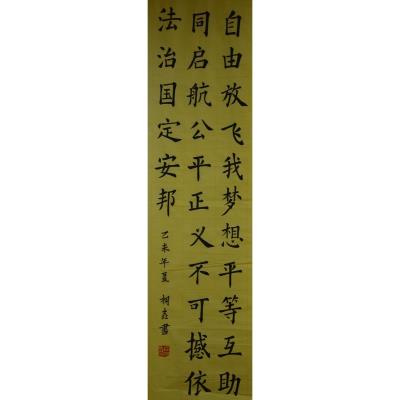 自由放飞我梦想平等互助
同启航公平正义不可撼依
法治国定安邦
乙未年夏
书